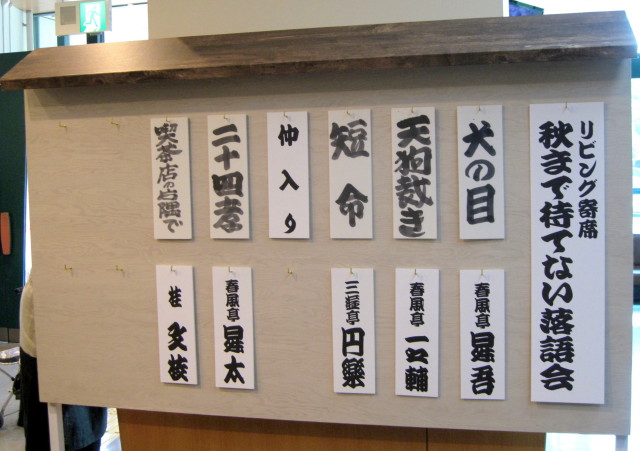 リビング寄席
秋まで待てない落語会
犬の目
春風亭 昇吾
天狗裁き
春風亭 一之輔
短命
三遊亭 円楽
仲入り
二十四孝
春風亭 昇太
喫茶店の片隅で
桂